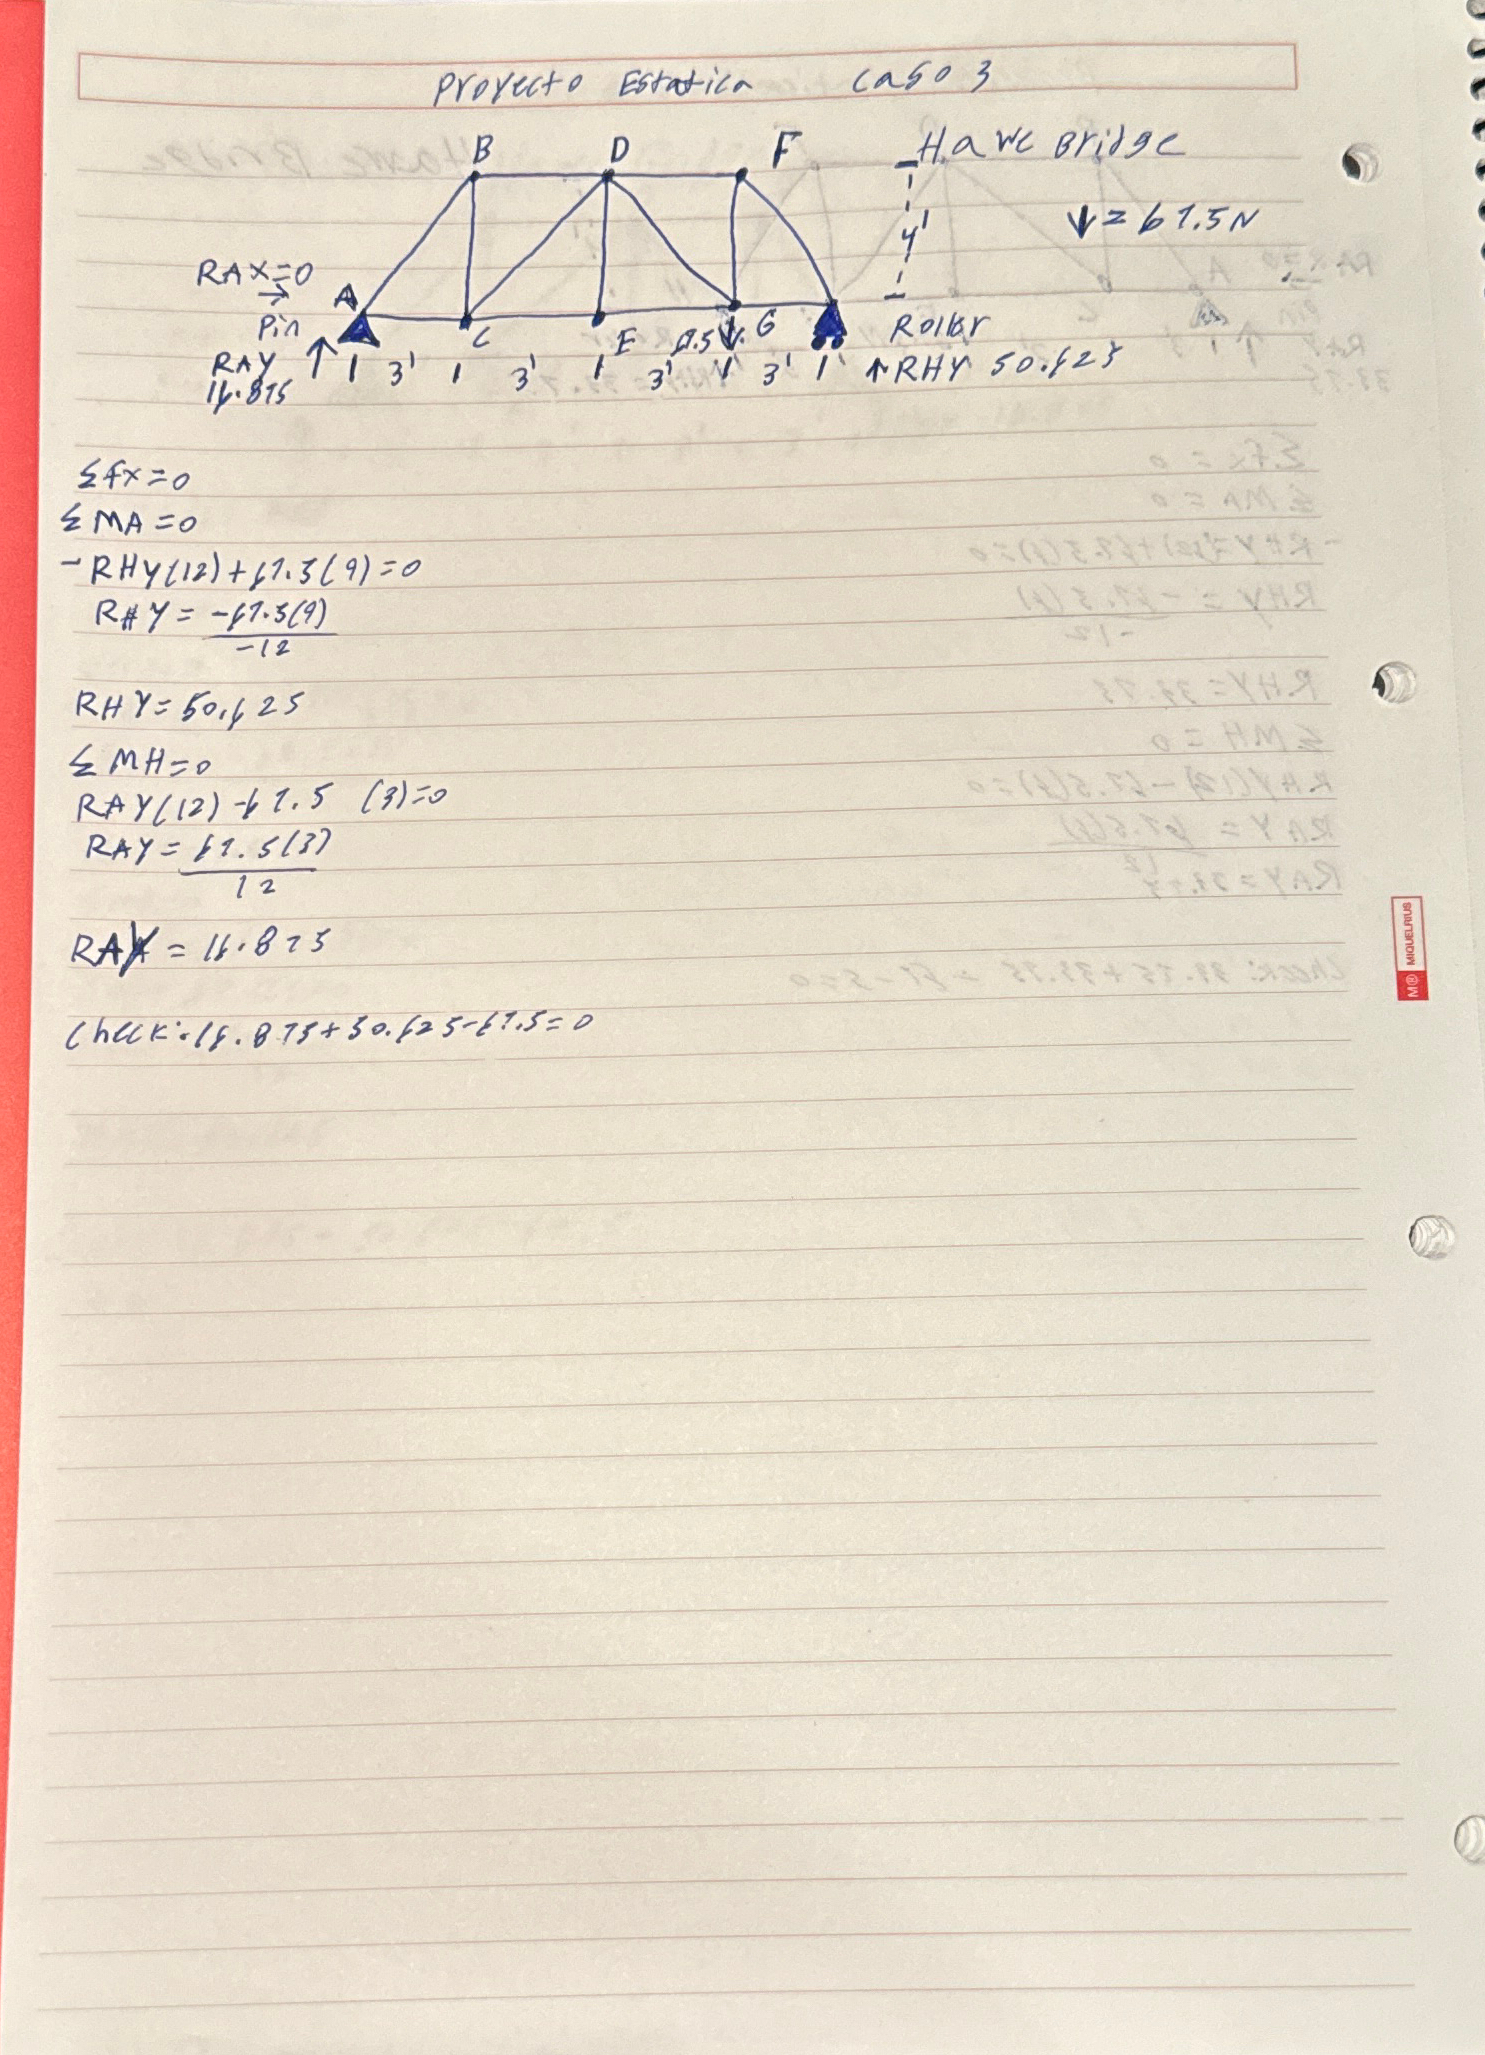 Proyecto Estatica Caso 3
B D F Hawe Bridge
4'
↓ = 67.5N
RAX=0
→
A
Pin
C E 67.5 ↓ G Roller
RAY ↑ 3' 3' 3' 3' ↑RHY 50.625
16.875
ΣFx=0
ΣMA=0
-RHY(12)+67.5(9)=0
RHY = -67.5(9)
-12
RHY=50.625
ΣMH=0
RAY(12)-67.5 (3)=0
RAY= 67.5(3)
12
RAY = 16.875
Check: 16.875+50.625-67.5=0
M MIQUELRIUS